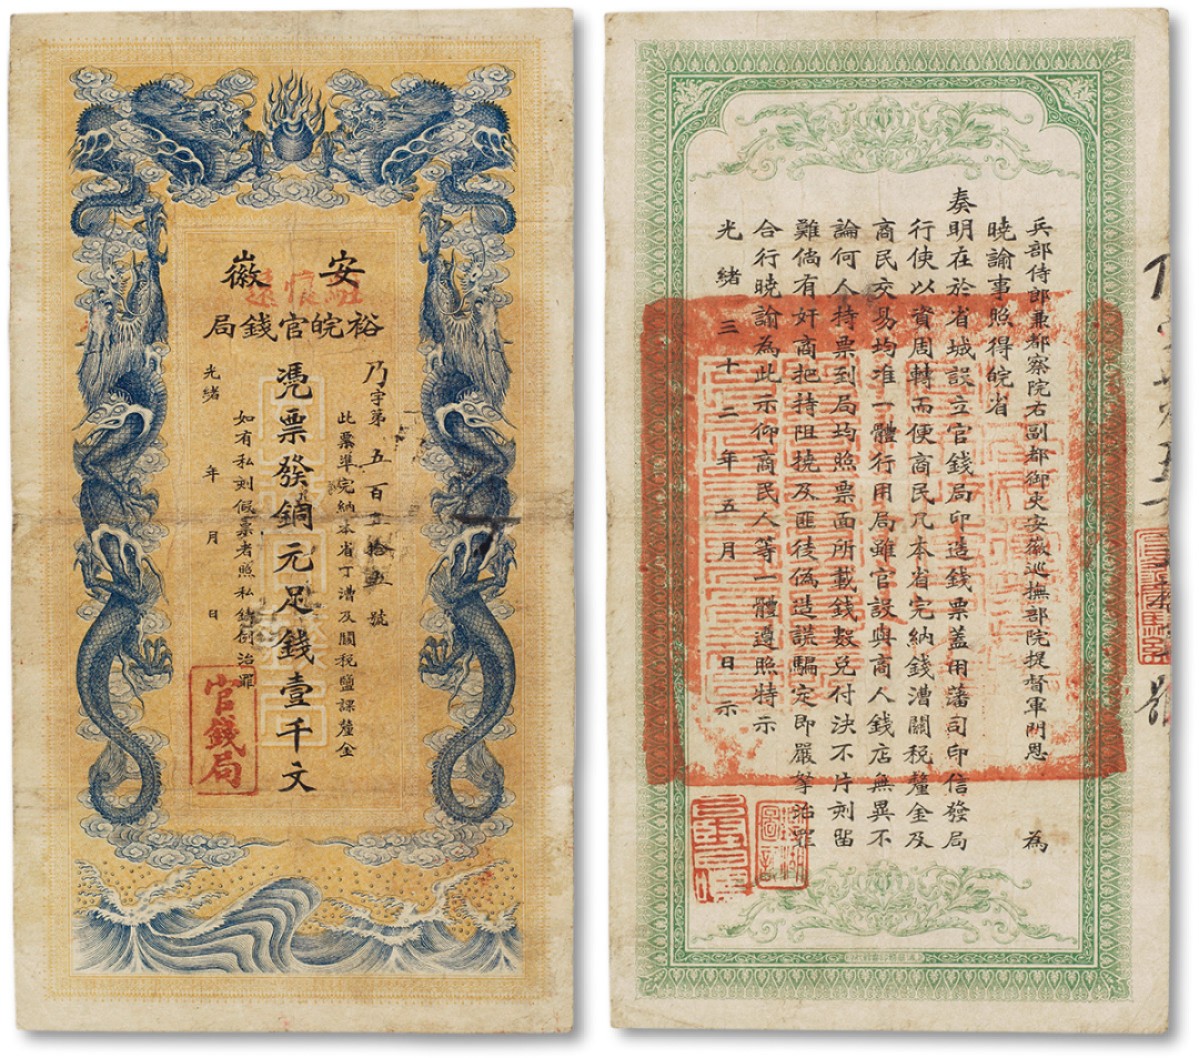 安徽
裕皖官錢局
乃字第五百壹拾五號
此票準完納本省丁漕及關稅鹽課釐金
憑票發銅元足錢壹千文
如有私刻假票者照私鑄例治罪
光緒 年 月 日
官錢局
兵部侍郎兼都察院右副都御史安徽巡撫部院提督軍門恩 為
曉諭事照得皖省
奏明在於省城設立官錢局印造錢票蓋用藩司印信發局
行使以資周轉而便商民凡本省完納錢漕關稅釐金及
商民交易均准一體行用局雖官設與商人錢店無異不
論何人持票到局均照票面所載錢數兌付決不片刻留
難倘有奸商把持阻撓及匪徒偽造誆騙定即嚴拏治罪
合行曉諭為此示仰商民人等一體遵照特示
光緒三十二年五月 日示